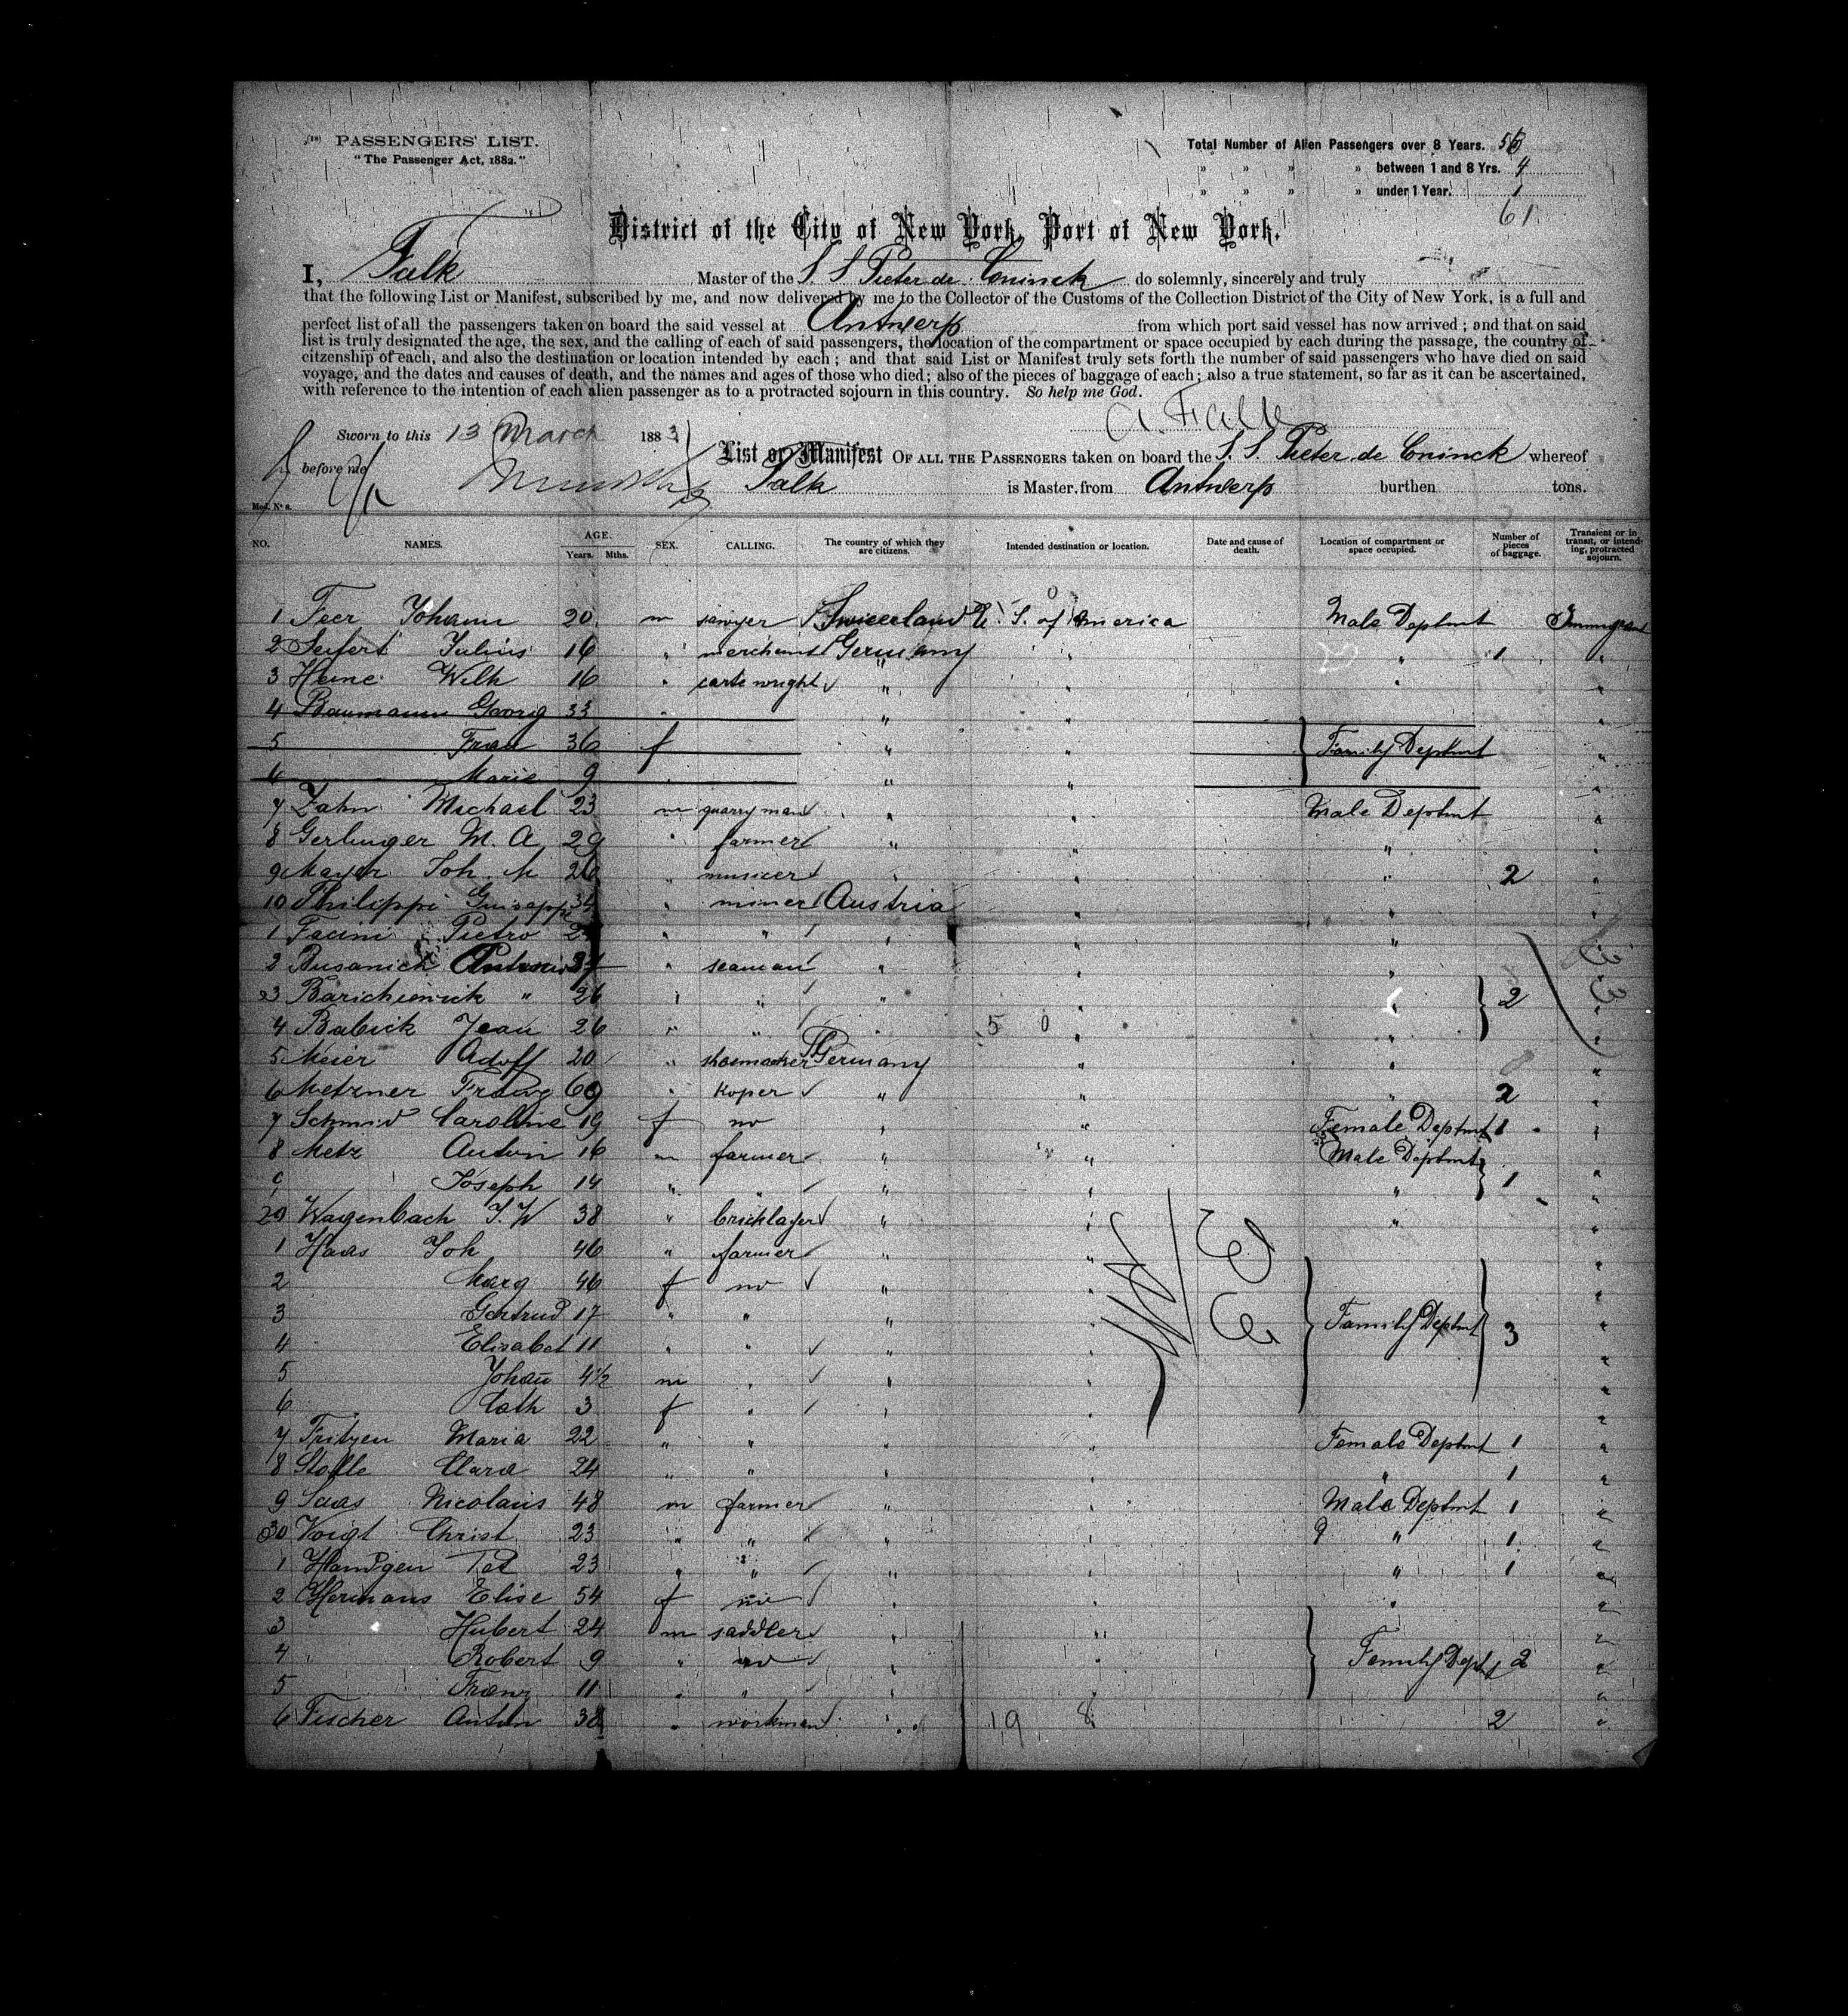 PASSENGERS' LIST.
"The Passenger Act, 1882."
Total Number of Alien Passengers over 8 Years. 56
" " " " between 1 and 8 Yrs. 4
" " " " under 1 Year. 1
61
District of the City of New York, Port of New York.
I, Falk Master of the S. S Pieter de Coninck do solemnly, sincerely and truly
that the following List or Manifest, subscribed by me, and now delivered by me to the Collector of the Customs of the Collection District of the City of New York, is a full and
perfect list of all the passengers taken on board the said vessel at Antwerp from which port said vessel has now arrived; and that on said
list is truly designated the age, the sex, and the calling of each of said passengers, the location of the compartment or space occupied by each during the passage, the country of
citzenship of each, and also the destination or location intended by each; and that said List or Manifest truly sets forth the number of said passengers who have died on said
voyage, and the dates and causes of death, and the names and ages of those who died; also of the pieces of baggage of each; also a true statement, so far as it can be ascertained,
with reference to the intention of each alien passenger as to a protracted sojourn in this country. So help me God.
A. Falk
Sworn to this 13 March 1883
before me
List or Manifest OF ALL THE PASSENGERS taken on board the S. S. Pieter de Coninck whereof
Falk is Master, from Antwerp burthen tons.
Mod. No 8.
NO. NAMES. AGE. Years. Mths. SEX. CALLING. The country of which they are citizens. Intended destination or location. Date and cause of death. Location of compartment or space occupied. Number of pieces of baggage. Transient or in transit, or intending, protracted sojourn.
1 Feer Johann 20 m sawyer Swicerland U. S. of America Male Deptmt Immigrant
2 Seifert Julius 16 " merchant Germany " " 1 "
3 Heine Wilh 16 " carte wright " " " "
4 Baumann Georg 33 " " " "
5 Frau 36 f " " Family Deptmt "
6 Marie 9 " " " "
7 Zahn Michael 23 m quarryman " " Male Deptmt "
8 Gerlinger M. A. 29 " farmer " " " "
9 Mayer Joh. M 26 " musicer " " " 2 "
10 Philippi Guisepp 34 " miner Austria " " "
1 Facini Pietro " " " " " "
2 Busanich " seaman " " " "
3 Barichievich " 26 " " " " " 2 "
4 Babick Jean 26 " " " 50 " " "
5 Meier Adolf 20 " shoemacker Germany " " "
6 Metzner 69 " koper " " " 2 "
7 Schmid Caroline 19 f no " " Female Deptmt 1 "
8 Metz Anton 16 m farmer " " Male Deptmt "
9 Joseph 14 " " " " " 1 "
20 Wagenbach J. W 38 " bricklayer " " " "
1 Haas Joh 46 " farmer " " "
2 Marg 46 f no " " "
3 Gertrud 17 " " " " Family Deptmt 3 "
4 Elisabet 11 " " " " "
5 Johan 4½ m " " " "
6 Cath 3 f " " " "
7 Fritzen Maria 22 " " " " Female Deptmt 1 "
8 Stolle Clara 24 " " " " " 1 "
9 Saas Nicolaus 48 m farmer " " Male Deptmt 1 "
30 Voigt Christ 23 " " " " " 1 "
1 Handgen 23 " " " " " 1 "
2 Hermans Elise 54 f no " " " "
3 Hubert 24 m saddler " " "
4 Robert 9 " no " " Family Dept 2 "
5 Franz 11 " " " " "
6 Fischer Anton 38 " workman " 19 8 2 "